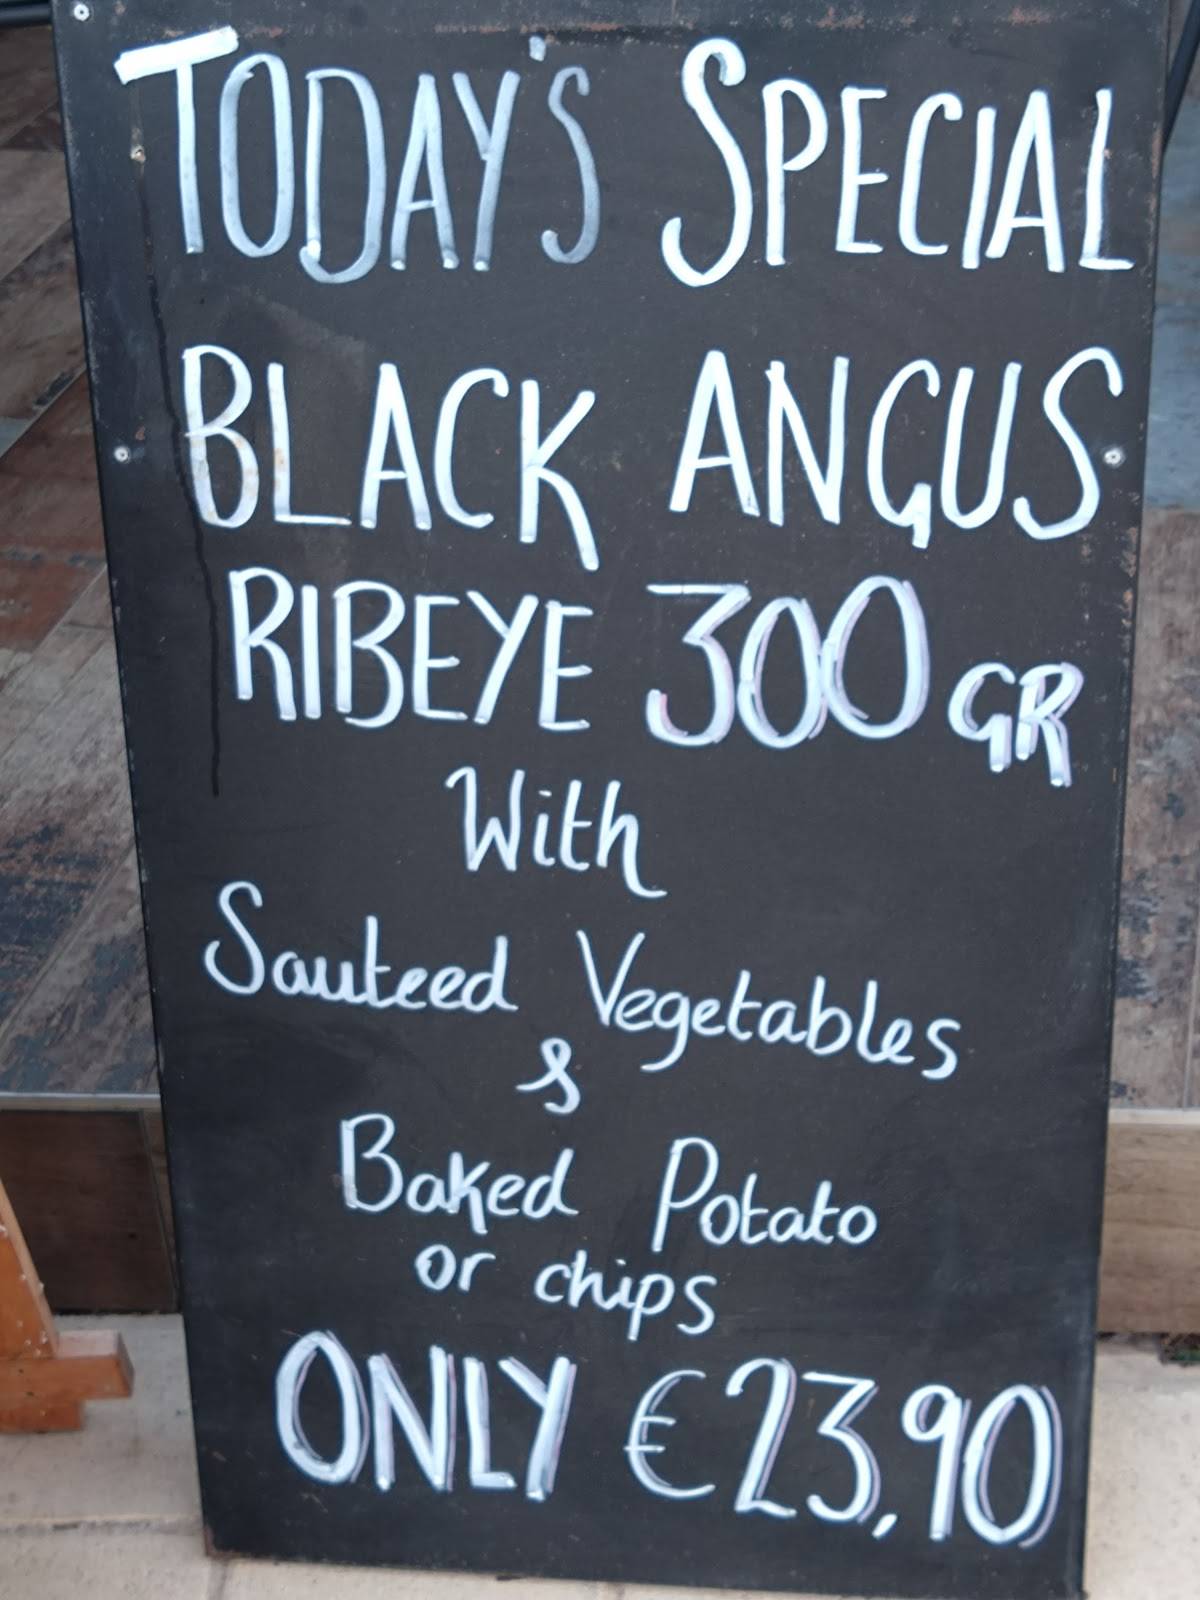 TODAY'S SPECIAL
BLACK ANGUS
RIBEYE 300 GR
With
Sauteed Vegetables
&
Baked Potato
or chips
ONLY €23,90